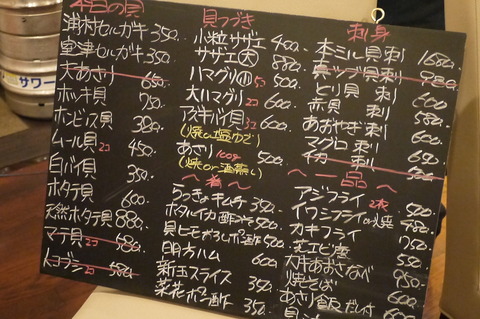 サワー
今日の貝
浦村セルガキ 350.
室津セルガキ 350.
大あさり 650
ホッキ貝 750
ホンビス貝 380
ムール貝 2コ 450.
白バイ貝 350
ホタテ貝 600
天然ホタテ貝 880
マテ貝 2コ 580
トコブシ 2コ 580
貝つづき
小粒サザエ 400
サザエ大 880
ハマグリ小 5コ 500
大ハマグリ 2コ 600
アズキバイ貝 3コ 600
(焼or塩ゆで)
あさり 100g 500
(焼or酒蒸し)
らっきょキムチ 350
ホタルイカ酢みそ 500
貝ヒモがらしポン酢 500
明方ハム 600
新玉スライス 350
菜花ポン酢 350
刺身
本ミル貝刺 1680
真ツブ貝刺 980
とり貝刺 600
赤貝刺 580
あおやぎ刺 600
マグロ刺
イカ刺 500
〜一品〜
アジフライ 2枚 500
イワシフライor焼 480
カキフライ 750
カキあおさなべ 950
焼そば 600
あさり飯 だし付 600